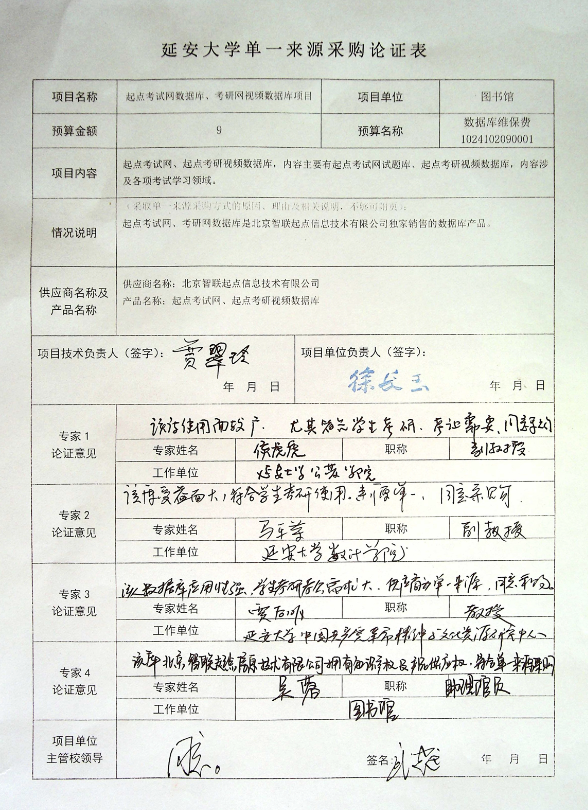 延安大学单一来源采购论证表
项目名称 起点考试网数据库、考研网视频数据库项目 项目单位 图书馆
预算金额 9 预算名称 数据库维保费
1024102090001
项目内容 起点考试网、起点考研视频数据库，内容主要有起点考试网试题库、起点考研视频数据库，内容涉
及各项考试学习领域。
情况说明 （采取单一来源采购方式的原因、理由及相关说明，不够可加页）：
起点考试网、考研网数据库是北京智联起点信息技术有限公司独家销售的数据库产品。
供应商名称及
产品名称
供应商名称：北京智联起点信息技术有限公司
产品名称：起点考试网、起点考研视频数据库
项目技术负责人（签字）： 贾翠玲 项目单位负责人（签字）：
徐长玉
年 月 日 年 月 日
专家1
论证意见
该库使用面较广，尤其为学生考研、考证需要，同意采购
专家姓名 侯虎虎 职称 副教授
工作单位 延安大学公共学院
专家2
论证意见
该库受益面大，符合学生考研使用。来源单一，同意采购
专家姓名 职称 副教授
工作单位 延安大学数计学院
专家3
论证意见
该数据库应用性强，学生考研考公需求大，供应商单一来源，同意采购
专家姓名 职称 教授
工作单位 延安大学中国共产党革命精神与文化资源研究中心
专家4
论证意见
该库北京智联起点信息技术有限公司拥有知识产权及
专家姓名 吴蕾 职称 助理馆员
工作单位 图书馆
项目单位
主管校领导
同意。 签名： 年 月 日